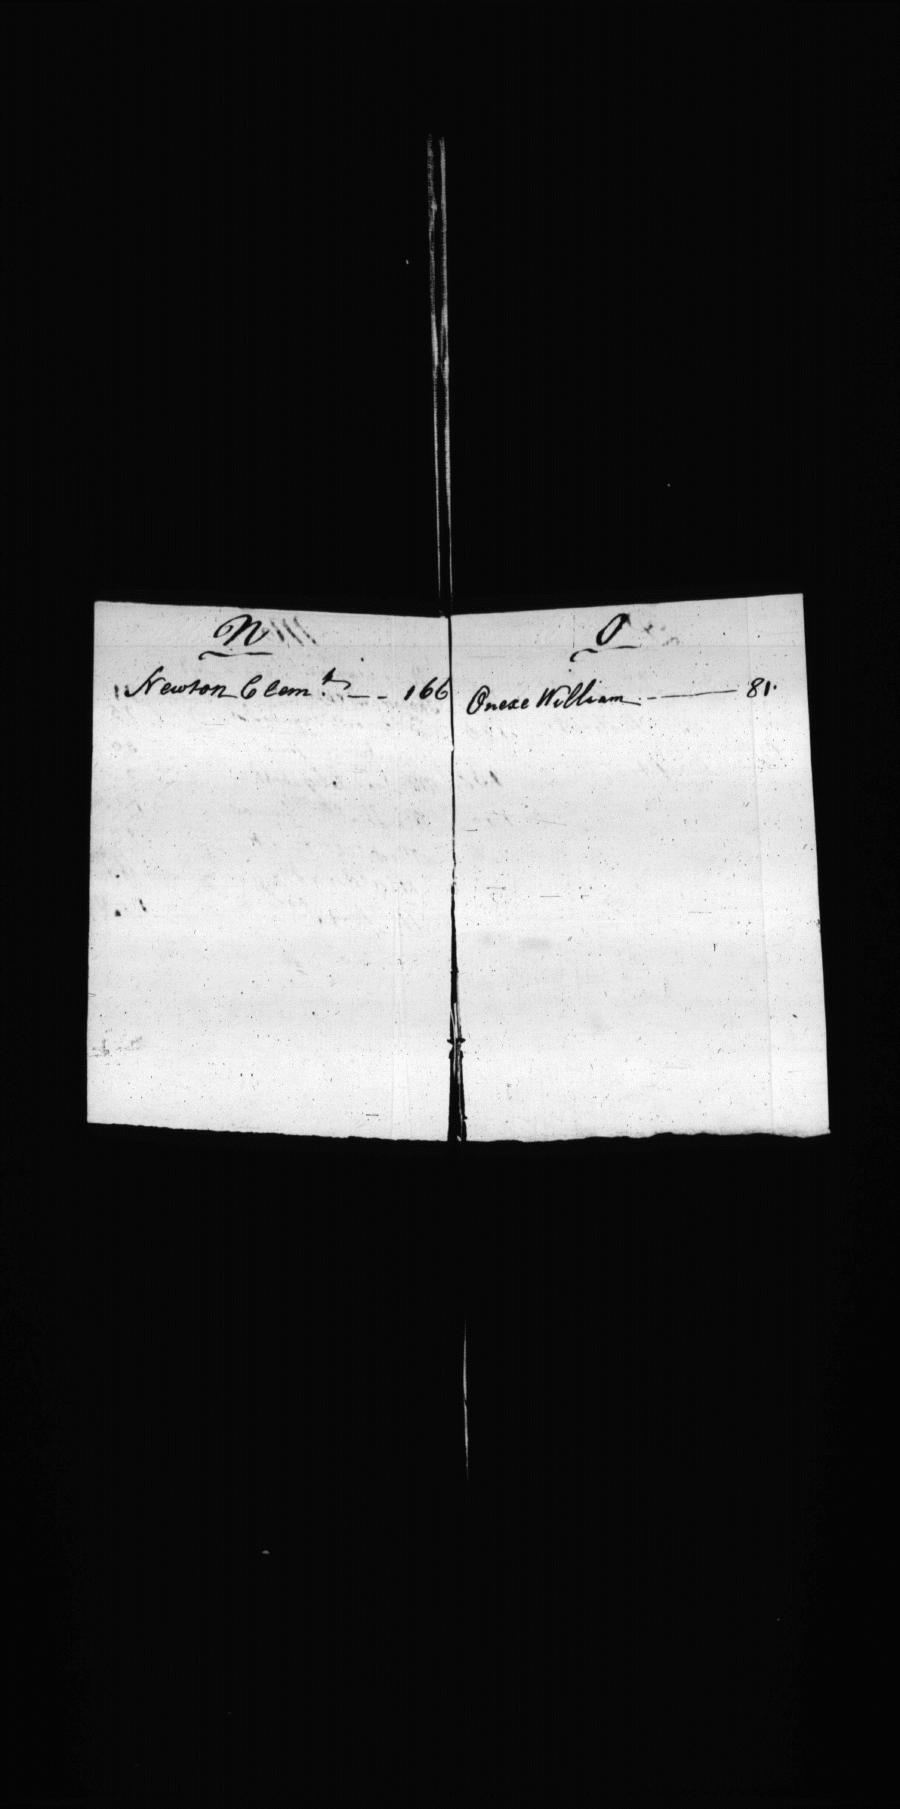 N
Newton Clem.t — 166
O
Onexe William — 81.